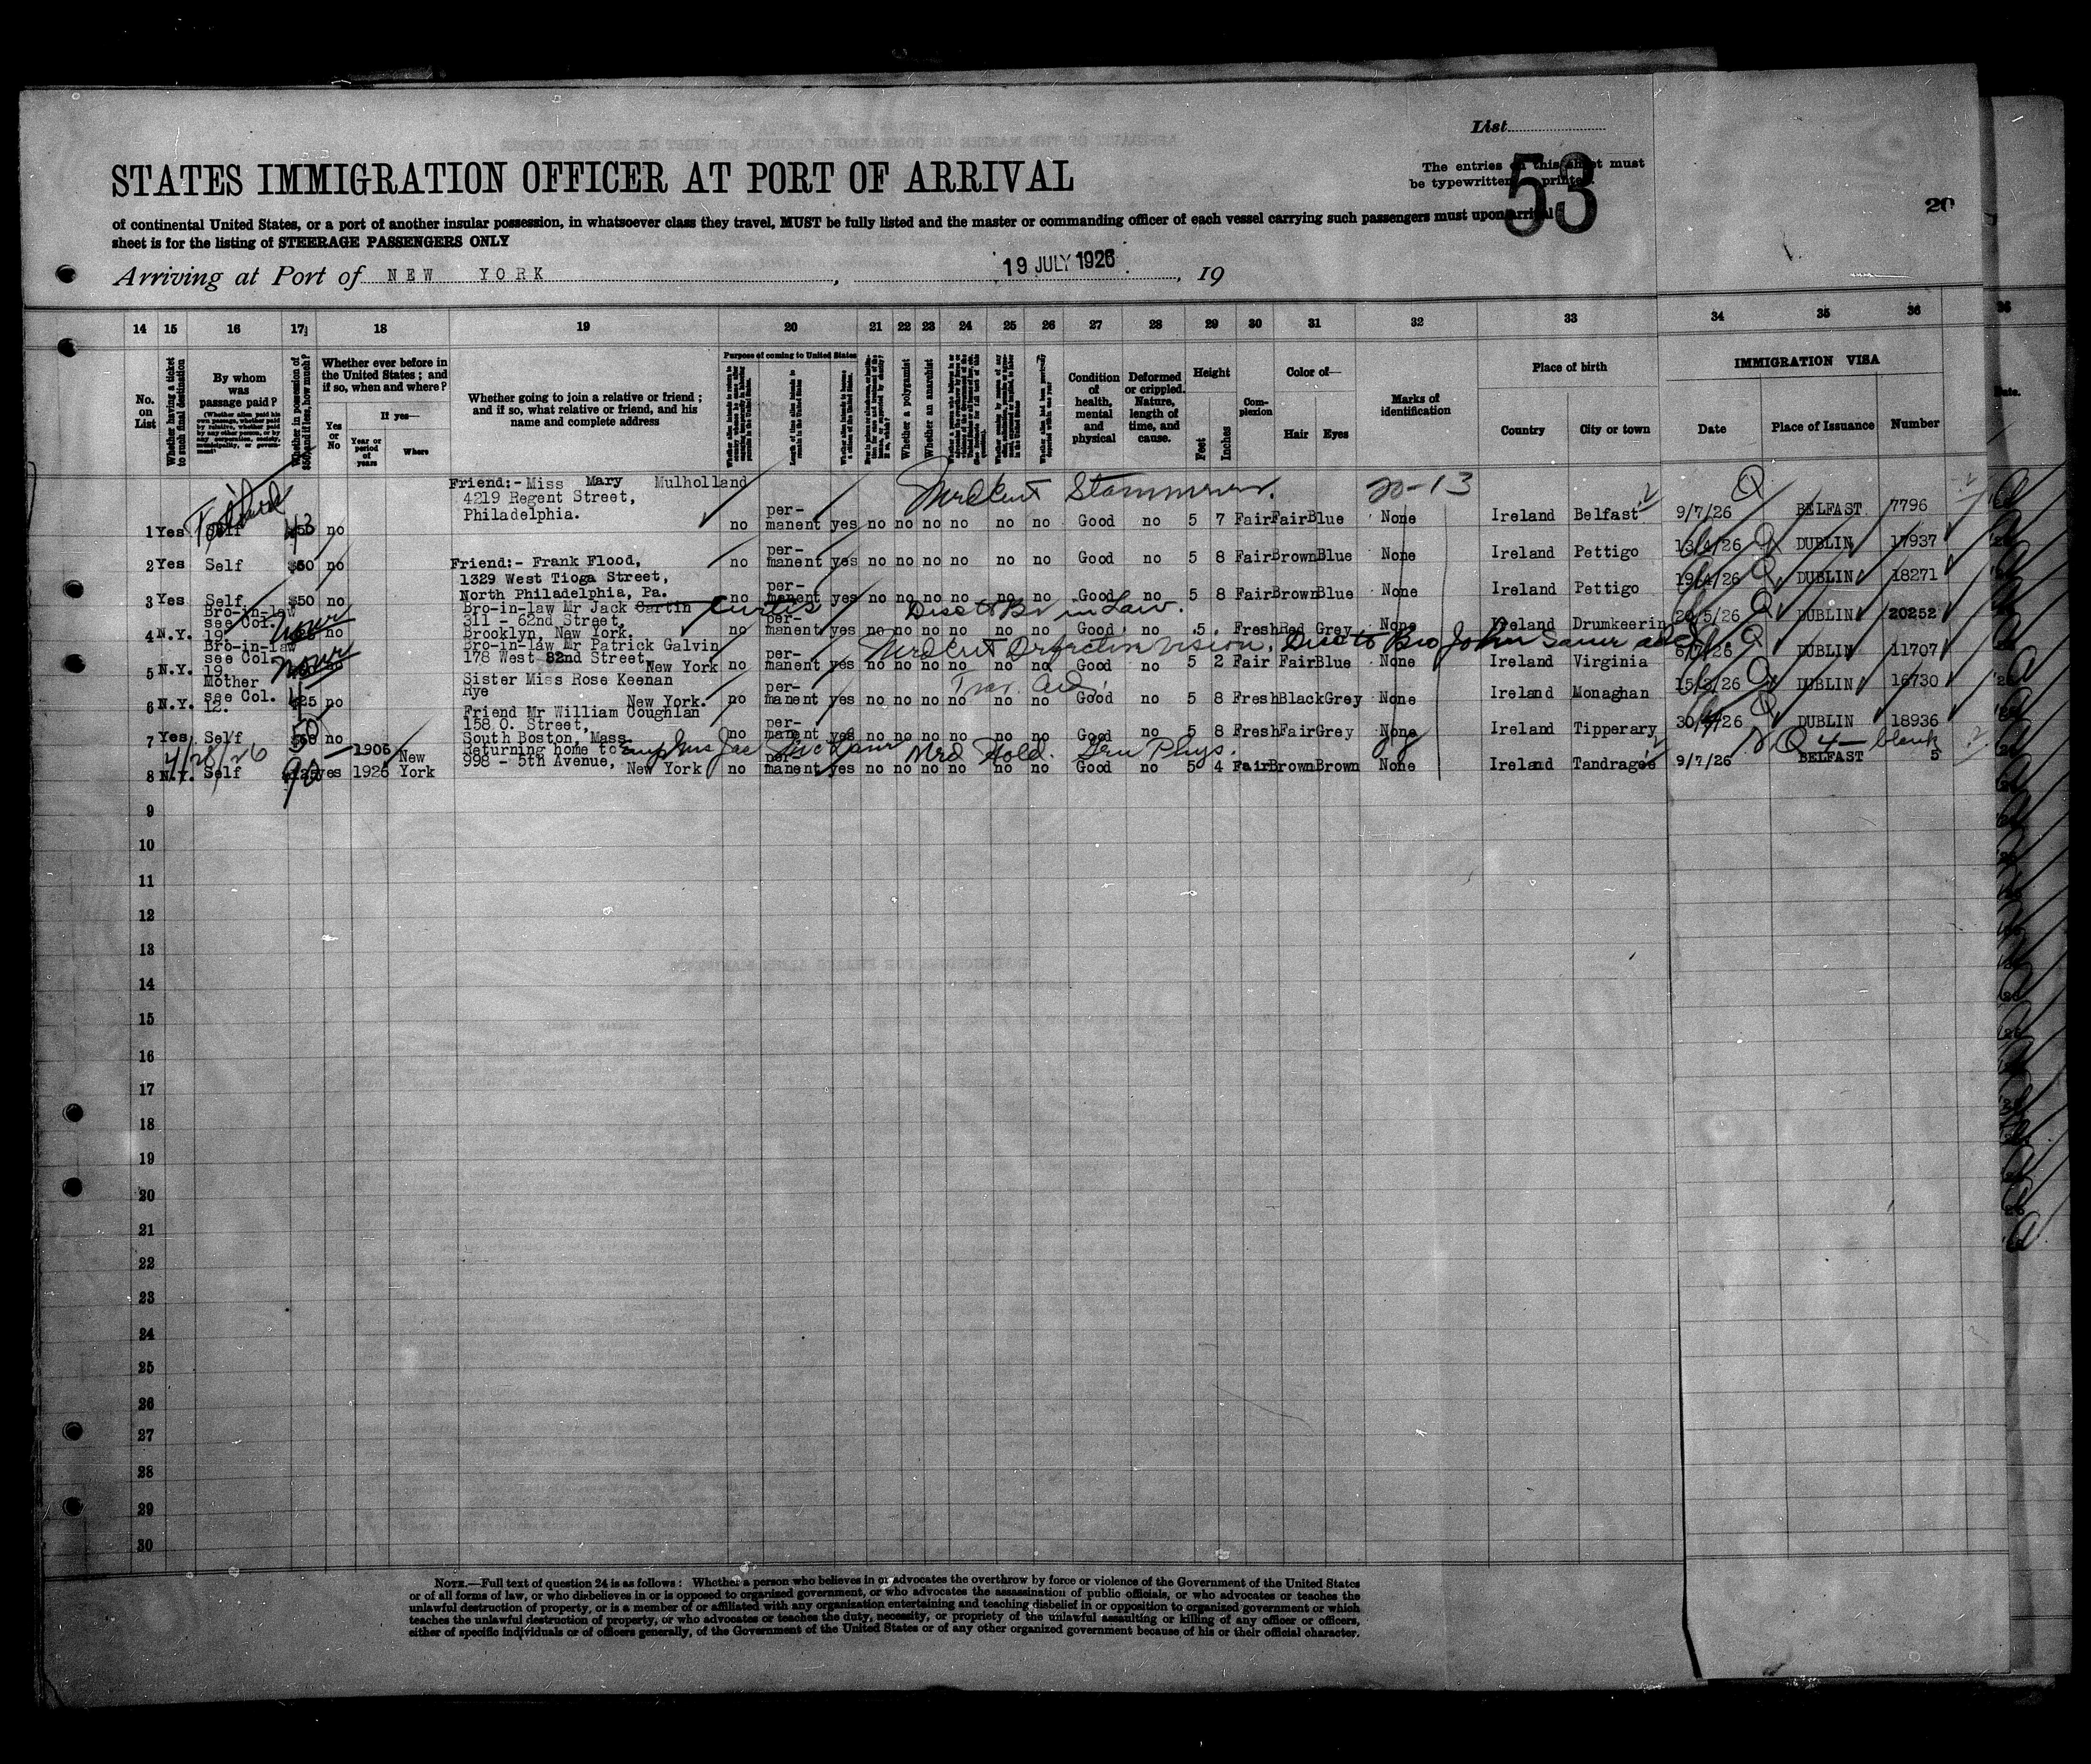 List
The entries on this sheet must
be typewritten printed.
53
20
STATES IMMIGRATION OFFICER AT PORT OF ARRIVAL
of continental United States, or a port of another insular possession, in whatsoever class they travel, MUST be fully listed and the master or commanding officer of each vessel carrying such passengers must upon arrival
sheet is for the listing of STEERAGE PASSENGERS ONLY
Arriving at Port of NEW YORK, 19 JULY 1926, 19
14 15 16 17 18 19 20 21 22 23 24 25 26 27 28 29 30 31 32 33 34 35 36
No. on List
Whether having a ticket to such final destination
By whom was passage paid?
(Whether alien paid his own passage, whether paid by relative, whether paid by any other person, or by any corporation, society, municipality, or government)
Whether in possession of $50, and if less, how much?
Whether ever before in the United States; and if so, when and where?
Yes or No
If yes—
Year or period of years
Where
Whether going to join a relative or friend; and if so, what relative or friend, and his name and complete address
Purpose of coming to United States
Whether a polygamist
Whether an anarchist
Condition of health, mental and physical
Deformed or crippled. Nature, length of time, and cause.
Height
Feet
Inches
Complexion
Color of—
Hair Eyes
Marks of identification
Place of birth
Country City or town
IMMIGRATION VISA
Date Place of Issuance Number
Date.
Friend:- Miss Mary Mulholland
4219 Regent Street,
Philadelphia.
Med Cert Stammerer. 20-13
1 Yes Self $50 no no per-manent yes no no no no no no Good no 5 7 Fair Fair Blue None Ireland Belfast 9/7/26 BELFAST 7796
2 Yes Self $50 no Friend:- Frank Flood, no per-manent yes no no no no no no Good no 5 8 Fair Brown Blue None Ireland Pettigo 13/4/26 DUBLIN 17937
1329 West Tioga Street,
3 Yes Self $50 no North Philadelphia, Pa. no per-manent yes no no no no no no Good no 5 8 Fair Brown Blue None Ireland Pettigo 19/4/26 DUBLIN 18271
Bro-in-law Bro-in-law Mr Jack Cartin Curtis Disc to Br in Law.
see Col. 311 - 62nd Street,
4 N.Y. 19 no Brooklyn, New York. no per-manent yes no no no no no no Good no 5 Fresh Red Grey None Ireland Drumkeerin 20/5/26 DUBLIN 20252
Bro-in-law Bro-in-law Mr Patrick Galvin Med Cert Defective Vision. Disc to Bro John
see Col. 178 West 82nd Street,
5 N.Y. 19 no New York no per-manent yes no no no no no no Good no 5 2 Fair Fair Blue None Ireland Virginia DUBLIN 11707
Mother Sister Miss Rose Keenan
see Col. Rye
6 N.Y. 12. $25 no New York. no per-manent yes no no no no no no Good no 5 8 Fresh Black Grey None Ireland Monaghan DUBLIN 16730
Friend Mr William Coughlan
158 O. Street,
7 Yes Self 50 no South Boston, Mass. no per-manent yes no no no no no no Good no 5 8 Fresh Fair Grey None Ireland Tipperary DUBLIN 18936
4/28/26 Returning home to Med Hold. Gen Phys. NQ 4— blank
1906 998 - 5th Avenue,
8 N.Y. Self 90 yes 1926 New York New York no per-manent yes no no no no no no Good no 5 4 Fair Brown Brown None Ireland Tandragee 9/7/26 BELFAST 5
9
10
11
12
13
14
15
16
17
18
19
20
21
22
23
24
25
26
27
28
29
30
NOTE.—Full text of question 24 is as follows: Whether a person who believes in or advocates the overthrow by force or violence of the Government of the United States
or of all forms of law, or who disbelieves in or is opposed to organized government, or who advocates the assassination of public officials, or who advocates or teaches the
unlawful destruction of property, or is a member of or affiliated with any organization entertaining and teaching disbelief in or opposition to organized government or which
teaches the unlawful destruction of property, or who advocates or teaches the duty, necessity, or propriety of the unlawful assaulting or killing of any officer or officers,
either of specific individuals or of officers generally, of the Government of the United States or of any other organized government because of his or their official character.